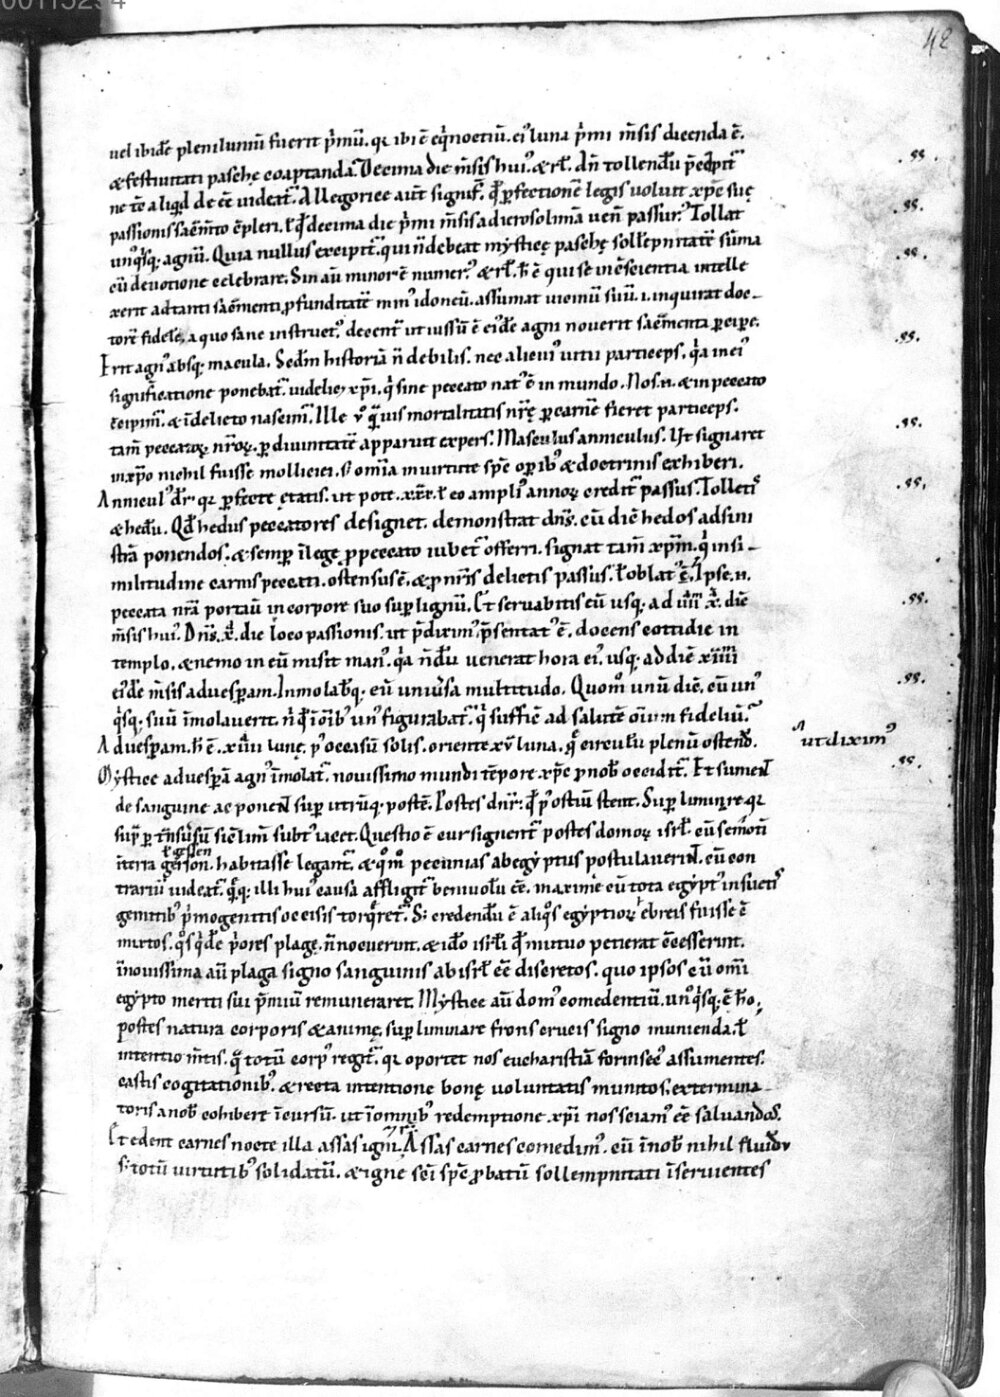 00115294
42
uel ibidē pleniluniū fuerit p̄mū. qr ibi ē eq̇noctiū. ei᾽ luna p̄mi m̄sis dicenda ē.
& festiuitati paschę coaptanda. Decima die m̄sis hui᾽. & rł. dn̄ tollendū p̄cipit᾽
ne tē aliqd de eē uideat᾽. Allegorice aut̄ signif. qđ p̄fectionē legis uoluit xp̄c suę
passionis sacm̄to ēpleri. ł qđ decima die p̄mi m̄sis adierosolimā uen̄ passur᾽. Tollat
un᾽q̇sq; agnū. Quia nullus excipit᾽. qui n̄ debeat mysticę paschę sollēpnitatē sūma
cū deuotione celebrare. Sin aū minor ē numer᾽. & rł. h̄ ē qui se in cscientia intelle
xerit ad tanti sacm̄enti ꝓfunditatē min᾽ idoneū. assumat uicinū suū. i. inquirat doc–
torē fidelē, a quo sane instruct᾽. decent᾽ ut iussū ē eidē agni nouerit sacm̄enta ꝑcipe.
Erit agn᾽ absq; macula. Sedm̄ historiā n̄ debilis. nec alicui᾽ uitii particeps. q̇a in ei᾽
significatione ponebat᾽. uidelic& xp̄i. q̇ sine peccato nat᾽ ē in mundo. Nos .n. & in peccato
cċipim᾽. & ī delicto nascim᾽. Ille v᾽ q̄uis mortalitatis nr̄ę ꝑ carnē fieret particeps.
tam̄ peccatoꝝ nr̄oꝝ. ꝑ diuinitatē apparuit expers. Masculus anniculus. Ut signaret
in xp̄o nichil fuisse molliciei. s; om̄ia in uirtute sp̄c opib᾽ & doctrinis exhiberi.
Annicul᾽ dr̄. qr ꝑfecte ętatis. ut pote .xxx. ł eo ampli᾽ annoꝝ credit᾽ passus. Tolletis
& hedū. Qđ hedus peccatores designet. demonstrat dn̄s. cū diē hedos ad sini
strā ponendos. & semp̄ ī lege ꝓ peccato iubet᾽ offerri. signat tam̄ xp̄m. q̇ in si–
militudine carnis peccati. ostensus ē. & ꝓ nr̄is delictis passus. ł oblat᾽ ē. Ipse .n.
peccata nr̄a portauit in corpore suo sup̄ lignū. Et seruabitis eū usq; ad .xiiii. diē
m̄sis hui᾽. Dn̄s .x. die loco passionis. ut p̄dixim᾽. p̄sentat᾽ ē. docens cottidie in
templo. & nemo in eū misit man᾽. q̇a n̄dū uenerat hora ei᾽. usq; ad diē xiiii
eidē m̄sis ad uesp̄am. Inmolabq; eū uniūsa multitudo. Quom᾽ unū diē. cū un᾽
q̇sq; suū īmolauerit. n̄ q̇ īoīb᾽ un᾽ figurabat᾽. q̇ suffic̄ ad salutē oīum fideliū.
Ad uesp̄am. h̄ ē .xiiii lunę. p᾽ occasū solis. oriente xv luna. q̄ circulū plenū ostend̄.
ut dixim᾽
Mystice ad uesp̄ā agn᾽ īmolat᾽. nouissimo mundi tēpore xp̄c ꝓ nob᾽ occidit᾽. Et sument
de sanguine ac ponent sup̄ utrūq; postē. Postes dn̄r. qđ p᾽ ostiū stent. Sup̄ liminare qr
sup̄ ꝑ sicē lim̄ subt᾽ iacet. Questio ē cur signent᾽ postes domoꝝ isrł. cū semoti
ł gessen
in terra gerson. habitasse legant᾽. & qm̄ pecunias ab egyptiis postulauerint. cū con
trariū uideat᾽. illi hui᾽ causa affligit᾽ beniuolū eē. maxime cū tota egypt᾽ insuetis
gemitib᾽ p̄mogenitis occisis torqret᾽. S; credendū ē aliq̇s egyptioꝝ ebreis fuisse ē
mixtos. q̇s q̇dē p̄ores plagę. n̄ nocuerunt. & idō isrłi qđ mutuo petierat cēcesserunt.
In nouissima aū plaga signo sanguinis ab isrł eē discretos. quo ipsos cū omī
egypto meriti sui p̄miū remuneraret. Mystice aū dom᾽ comedentiū. un᾽q̇sq; ē h᾽o,
postes natura corporis & animę. sup̄ liminare frons crucis signo munienda. ł
intentio m̄tis. q̄ totū corp᾽ regit᾽. qr oportet nos eucharistiā forinsec᾽ assumentes.
castis cogitationib᾽. & recta intentione bonę uoluntatis munitos. extermina–
toris a nob᾽ cohibere īcursū. ut ī omnib᾽ redemptione xp̄i nos sciam᾽ eē saluandos.
Et edent carnes nocte illa assas igni. Assas carnes comedim᾽. cū ī nob᾽ nihil fluidū
s; totū uirtutib᾽ solidatū. & igne sc̄i sp̄c ꝓbatū sollempnitati īseruientes
.ss.
.ss.
.ss.
.ss.
.ss.
.ss.
.ss.
.ss.
.ss.